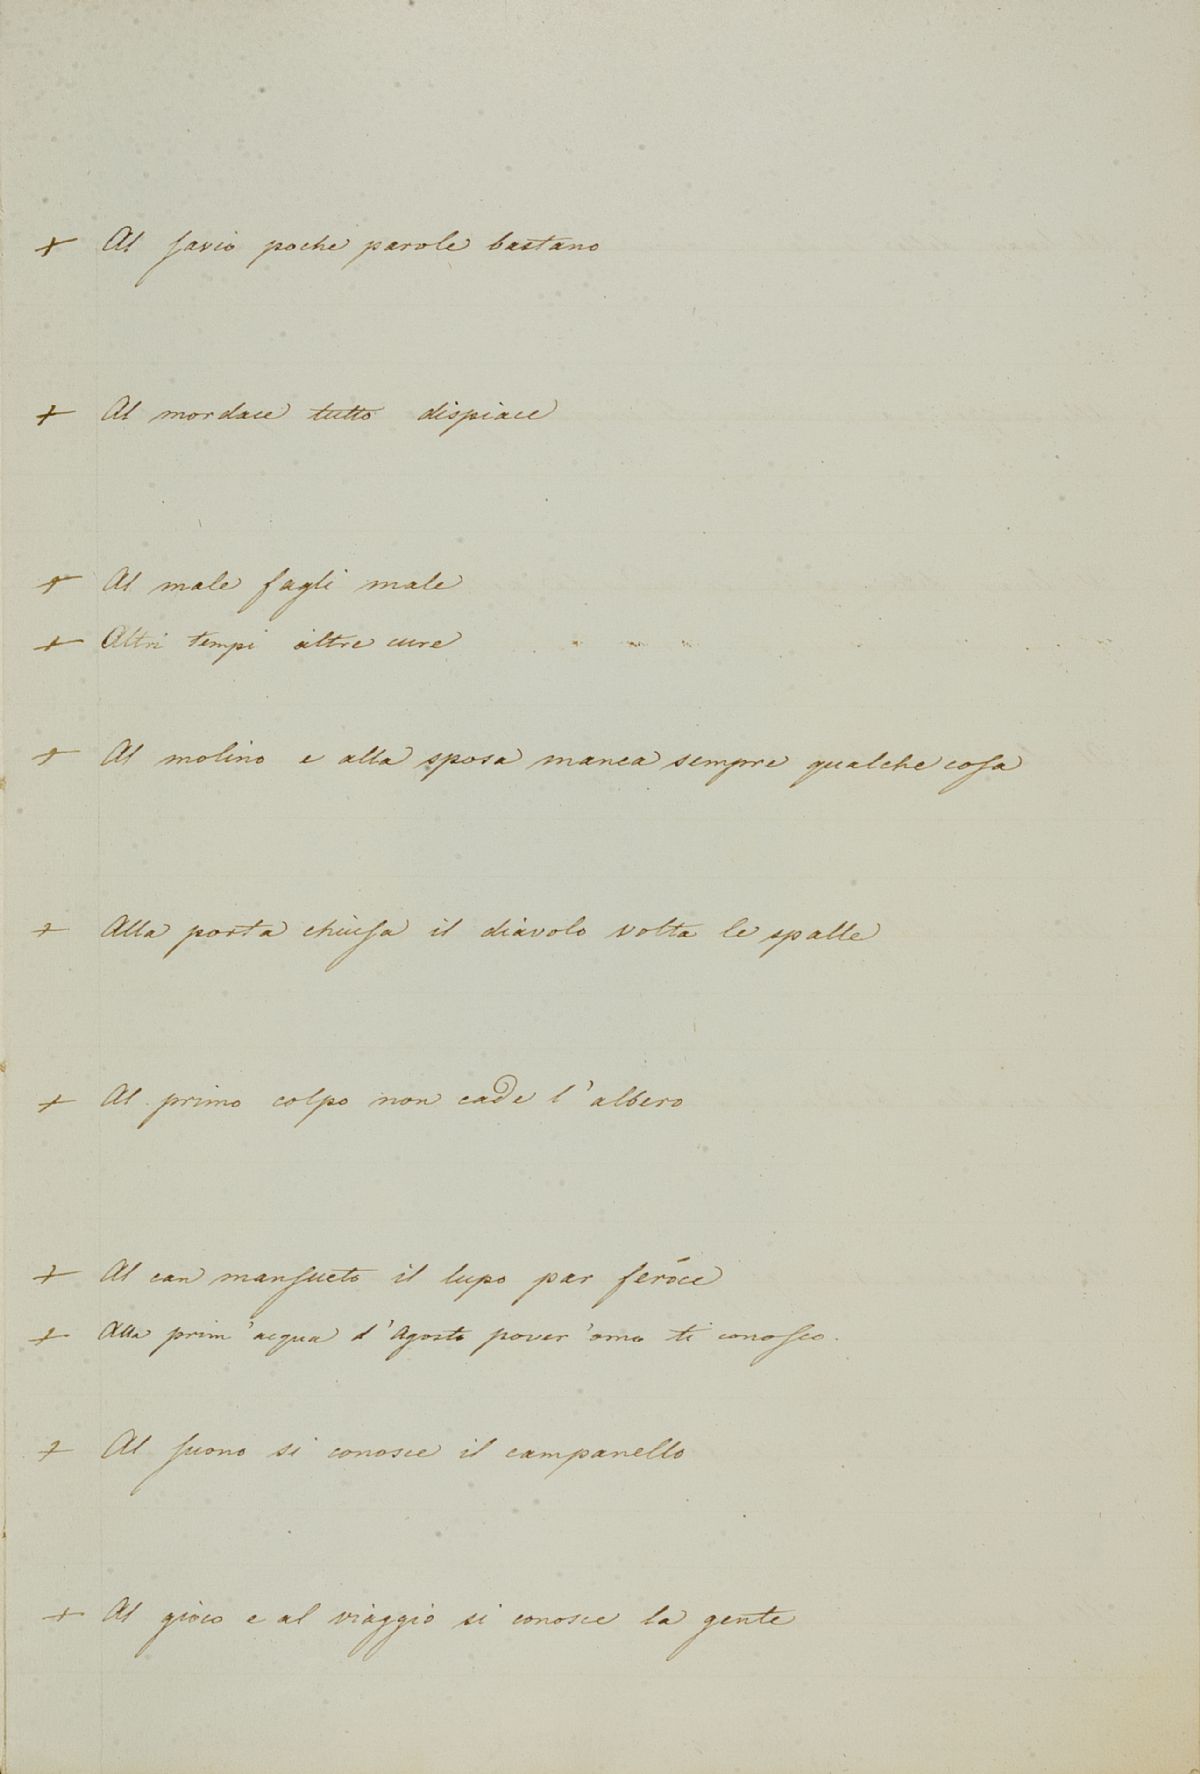 + Al savio poche parole bastano
+ Al mordace tutto dispiace
+ Al male fagli male
+ Altri tempi altre cure
+ Al molino e alla sposa manca sempre qualche cosa
+ Alla porta chiusa il diavolo volta le spalle
+ Al primo colpo non cade l'albero
+ Al can mansueto il lupo par feróce
+ Alla prim'acqua d'Agosto pover'omo ti conosco.
+ Al suono si conosce il campanello
+ Al gioco e al viaggio si conosce la gente